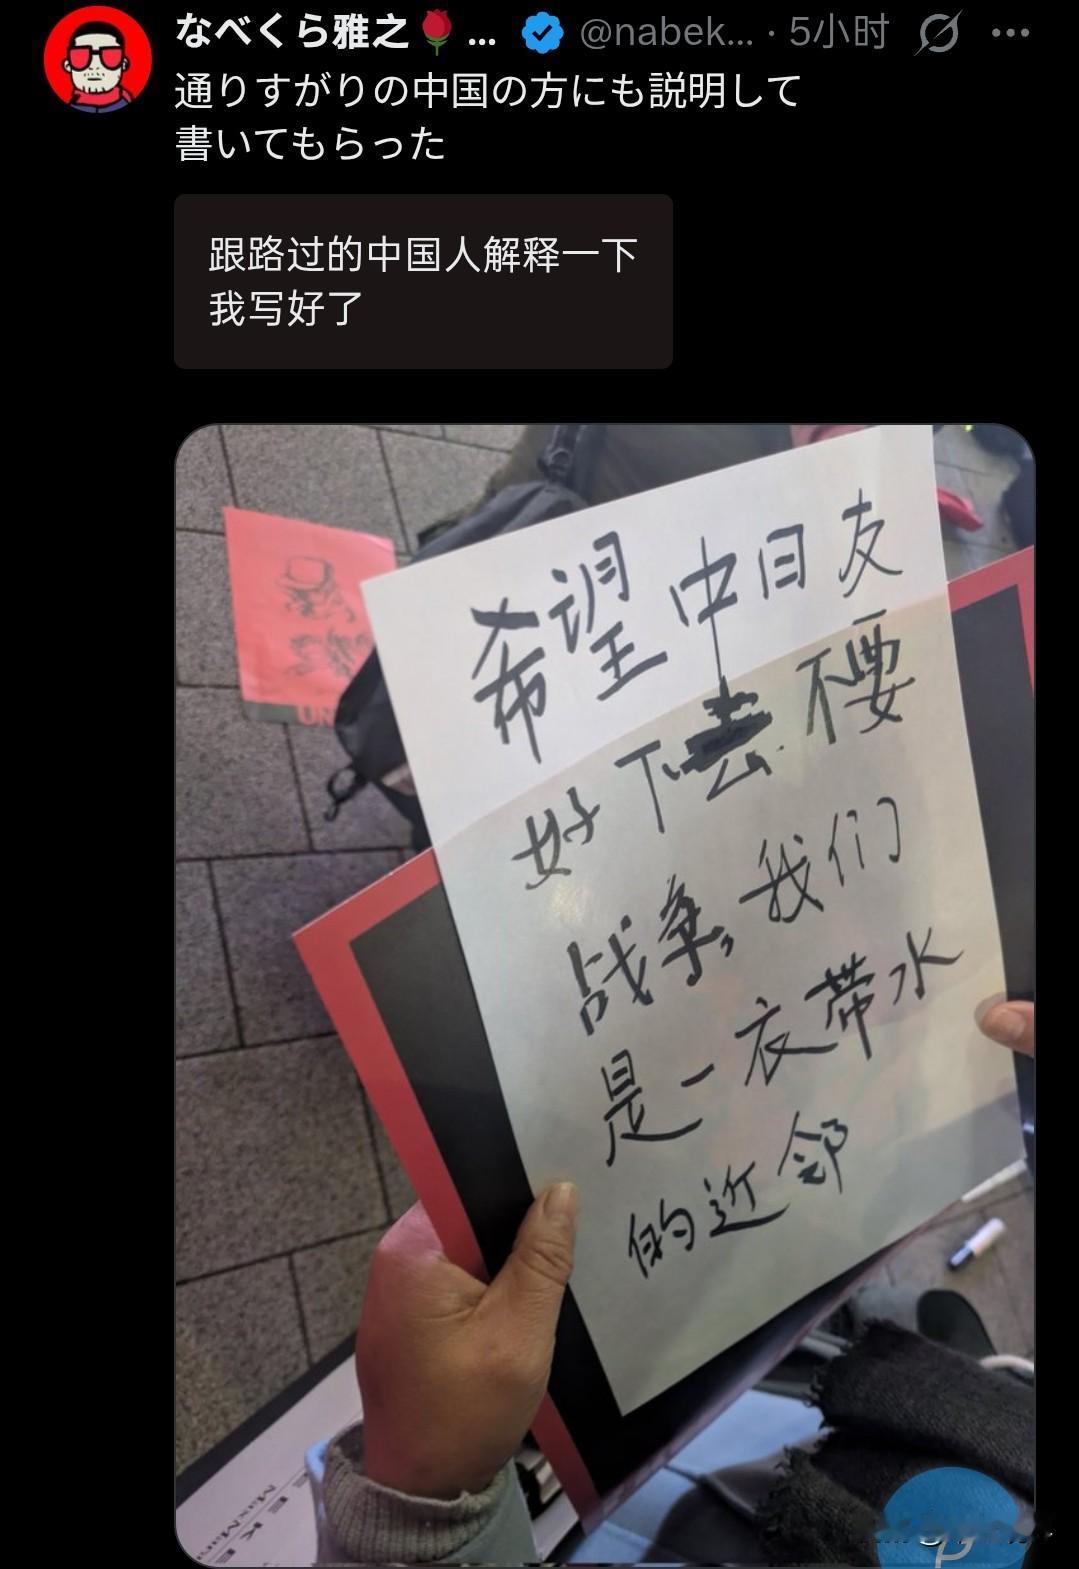 なべくら雅之🌹... @nabek... · 5小时
通りすがりの中国の方にも説明して
書いてもらった
跟路过的中国人解释一下
我写好了
希望中日友
好下去 不要
战争,我们
是一衣带水
的近邻
UN